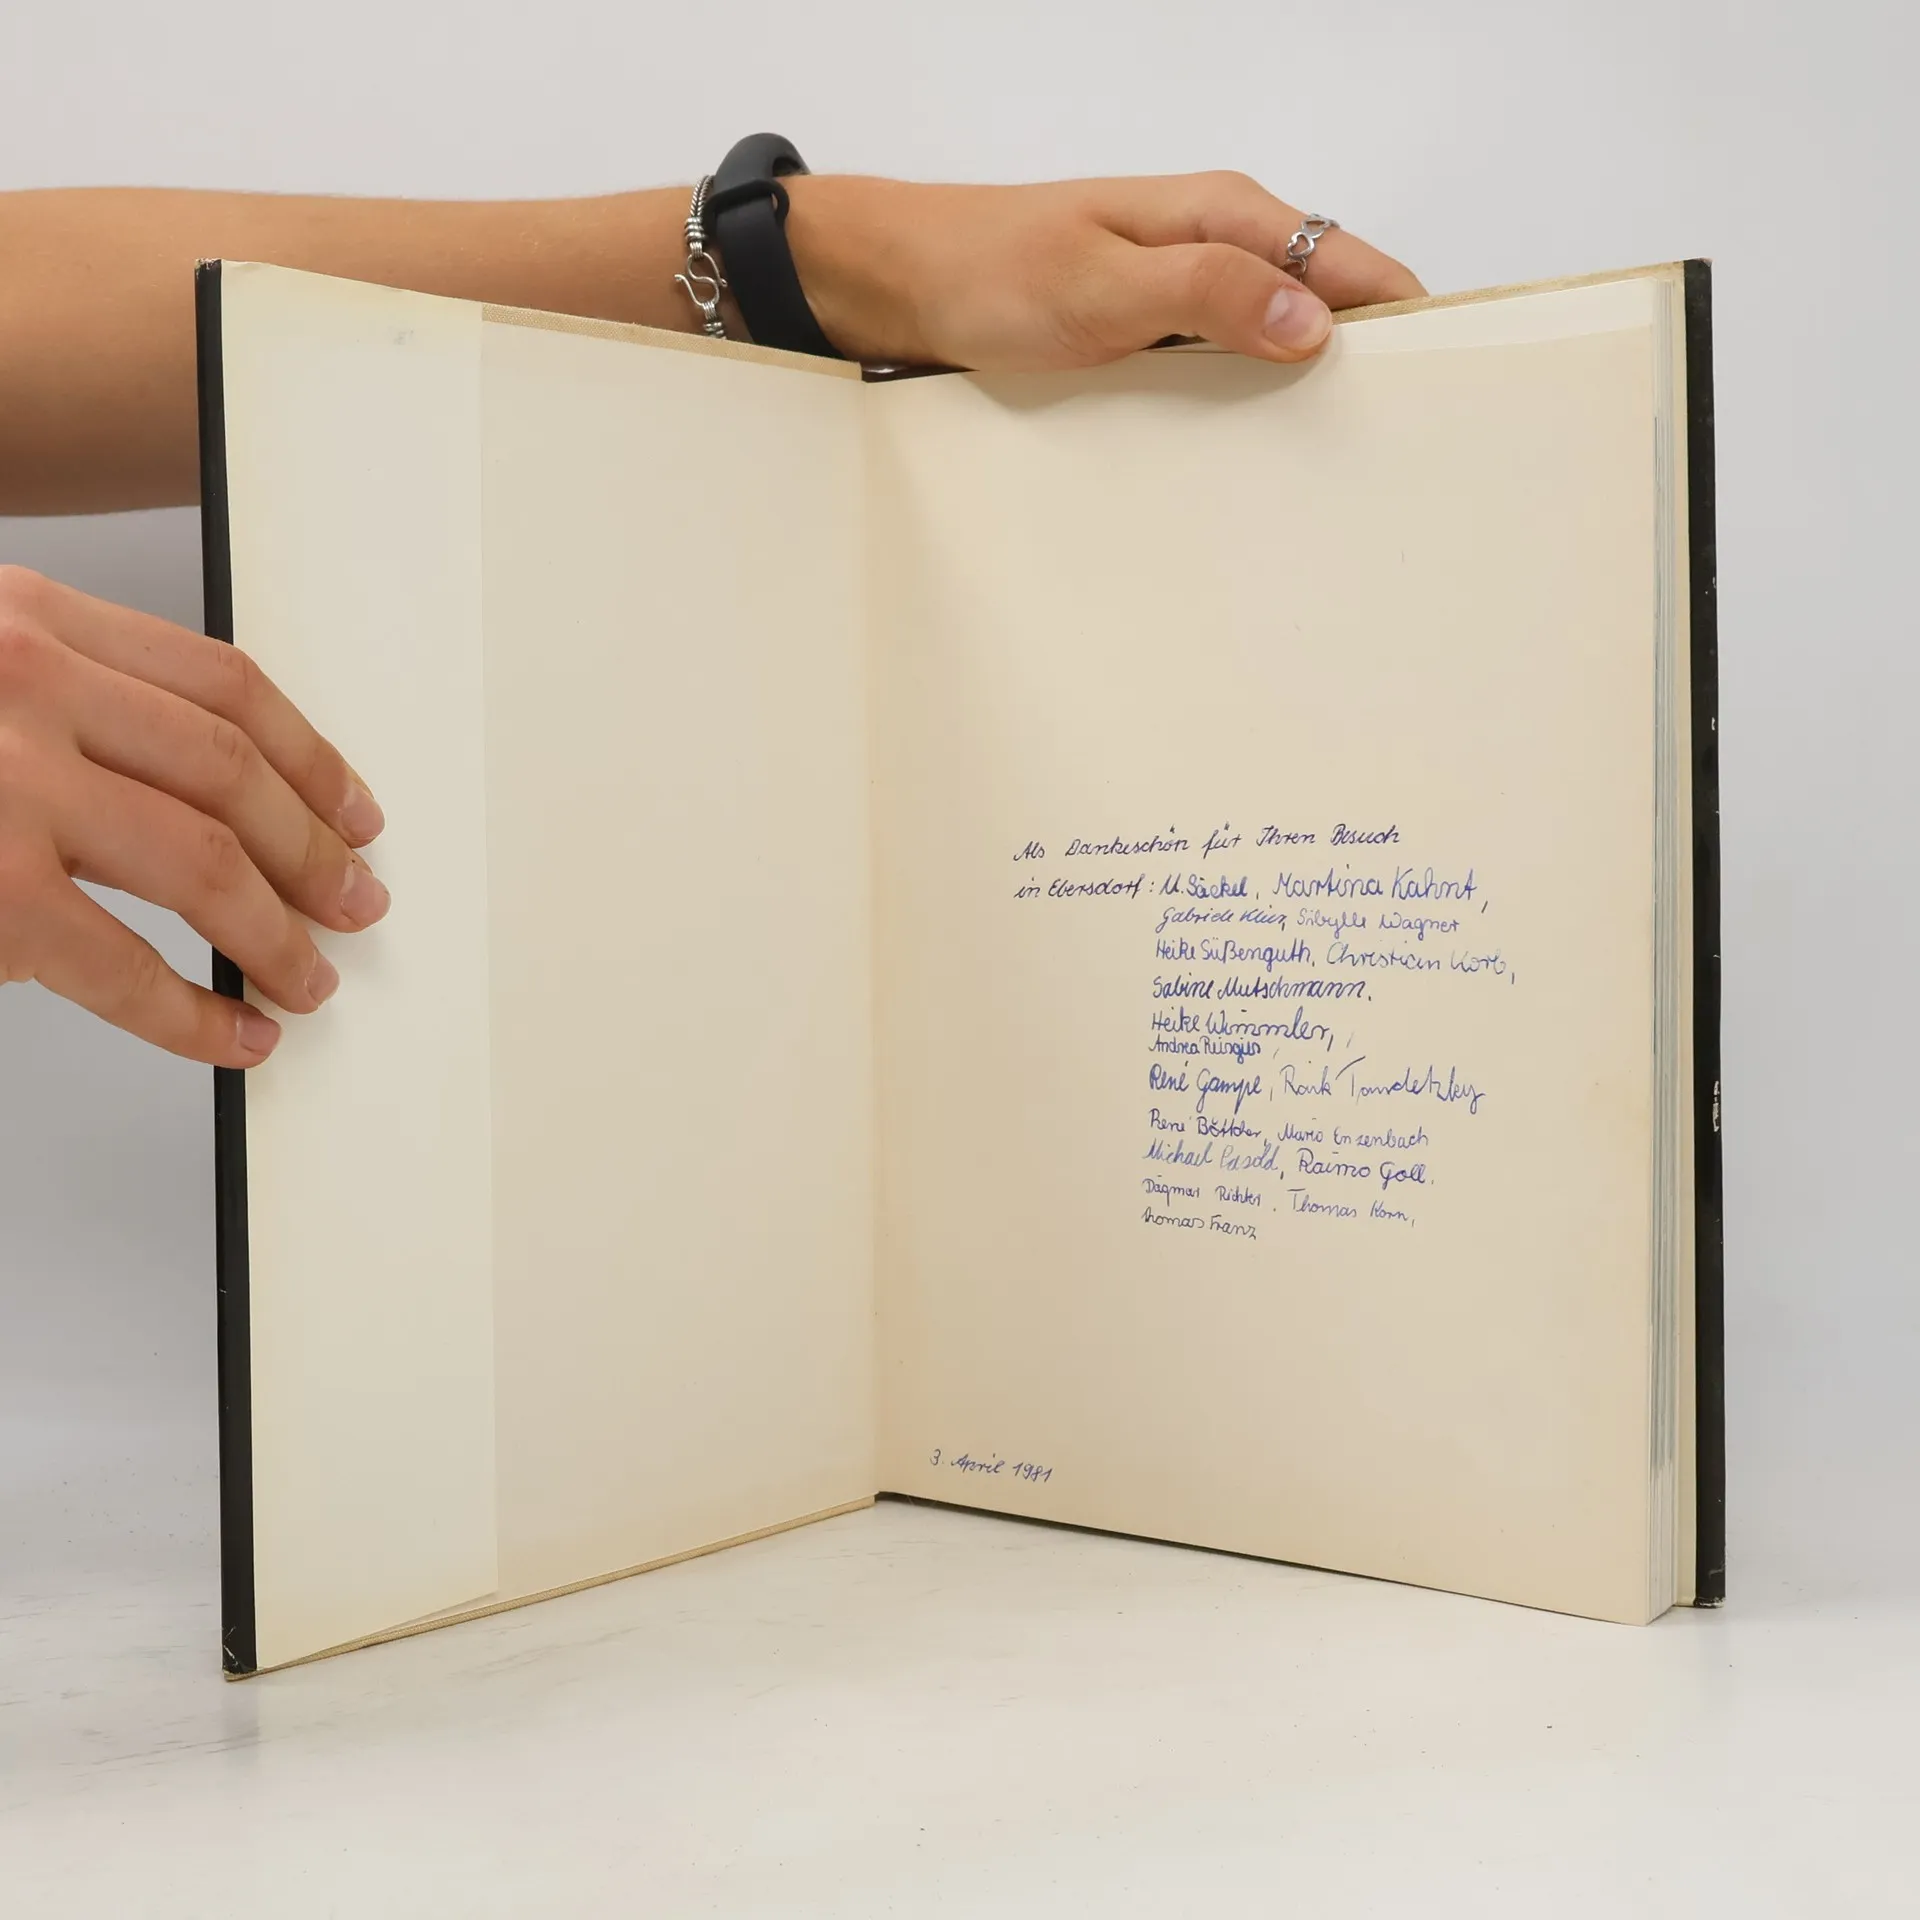 Als Dankeschön für Ihren Besuch
in Ebersdorf: U. Säckel, Martina Kahnt,
Gabriele Sibylle Wagner
Heike Süßenguth, Christian Korb,
Sabine Mutschmann.
Heike Wimmler,
Andrea
René Gampe, Tandetzky
René Böttcher, Mario Enzenbach
Michael Pasold, Raimo Goll.
Dagmar Richter. Thomas Korn,
Thomas Franz
3. April 1981